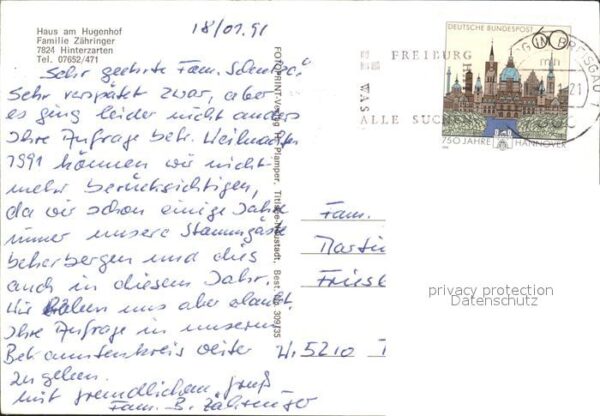 Haus am Hugenhof
Familie Zähringer
7824 Hinterzarten
Tel. 07652/471
18/01.91
Sehr geehrte Fam.
Sehr verspätet zwar, aber
es ging leider nicht anders
Ihre Anfrage betr. Weihnachten
1991 können wir nicht
mehr berücksichtigen,
da wir schon einige Jahre
immer unsere Stammgäste
beherbergen und dies
auch in diesem Jahr.
Wir haben uns aber erlaubt,
Ihre Anfrage in unserem
Bekanntenkreis weiter
zu geben.
Mit freundlichem Gruß
Fam. B. Zähringer
FOTOPRINT-Verlag H. Plamper, Titisee-Neustadt. Best. Nr. 309/35
DEUTSCHE BUNDESPOST 60
750 JAHRE HANNOVER
FREIBURG
WAS
ALLE SUCHEN
BREISGAU 1
21
Fam.
Martin
W. 5210
privacy protection
Datenschutz